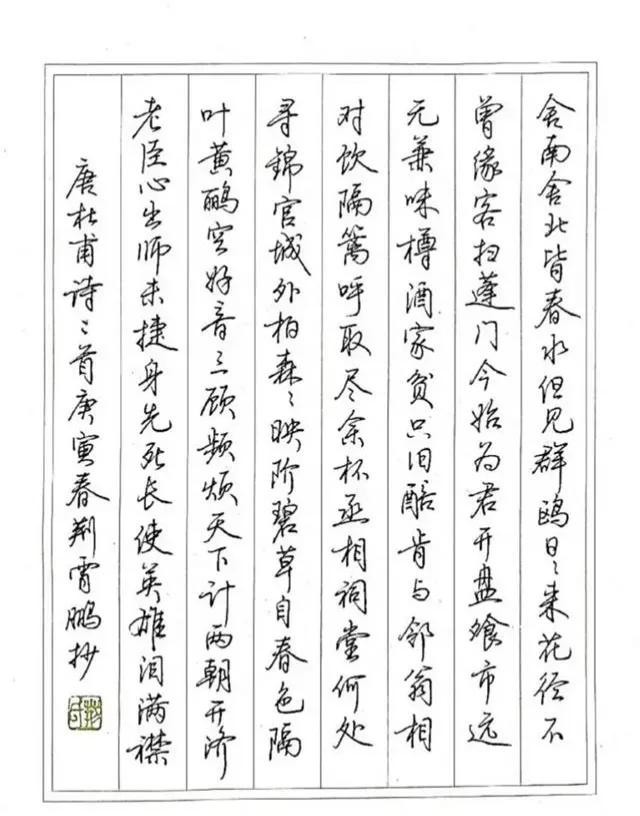 舍南舍北皆春水但见群鸥日〻来花径不
曾缘客扫蓬门今始为君开盘飧市远
无兼味樽酒家贫只旧醅肯与邻翁相
对饮隔篱呼取尽余杯丞相祠堂何处
寻锦官城外柏森〻映阶碧草自春色隔
叶黄鹂空好音三顾频烦天下计两朝开济
老臣心出师未捷身先死长使英雄泪满襟
唐杜甫诗二首庚寅春荆霄鹏抄